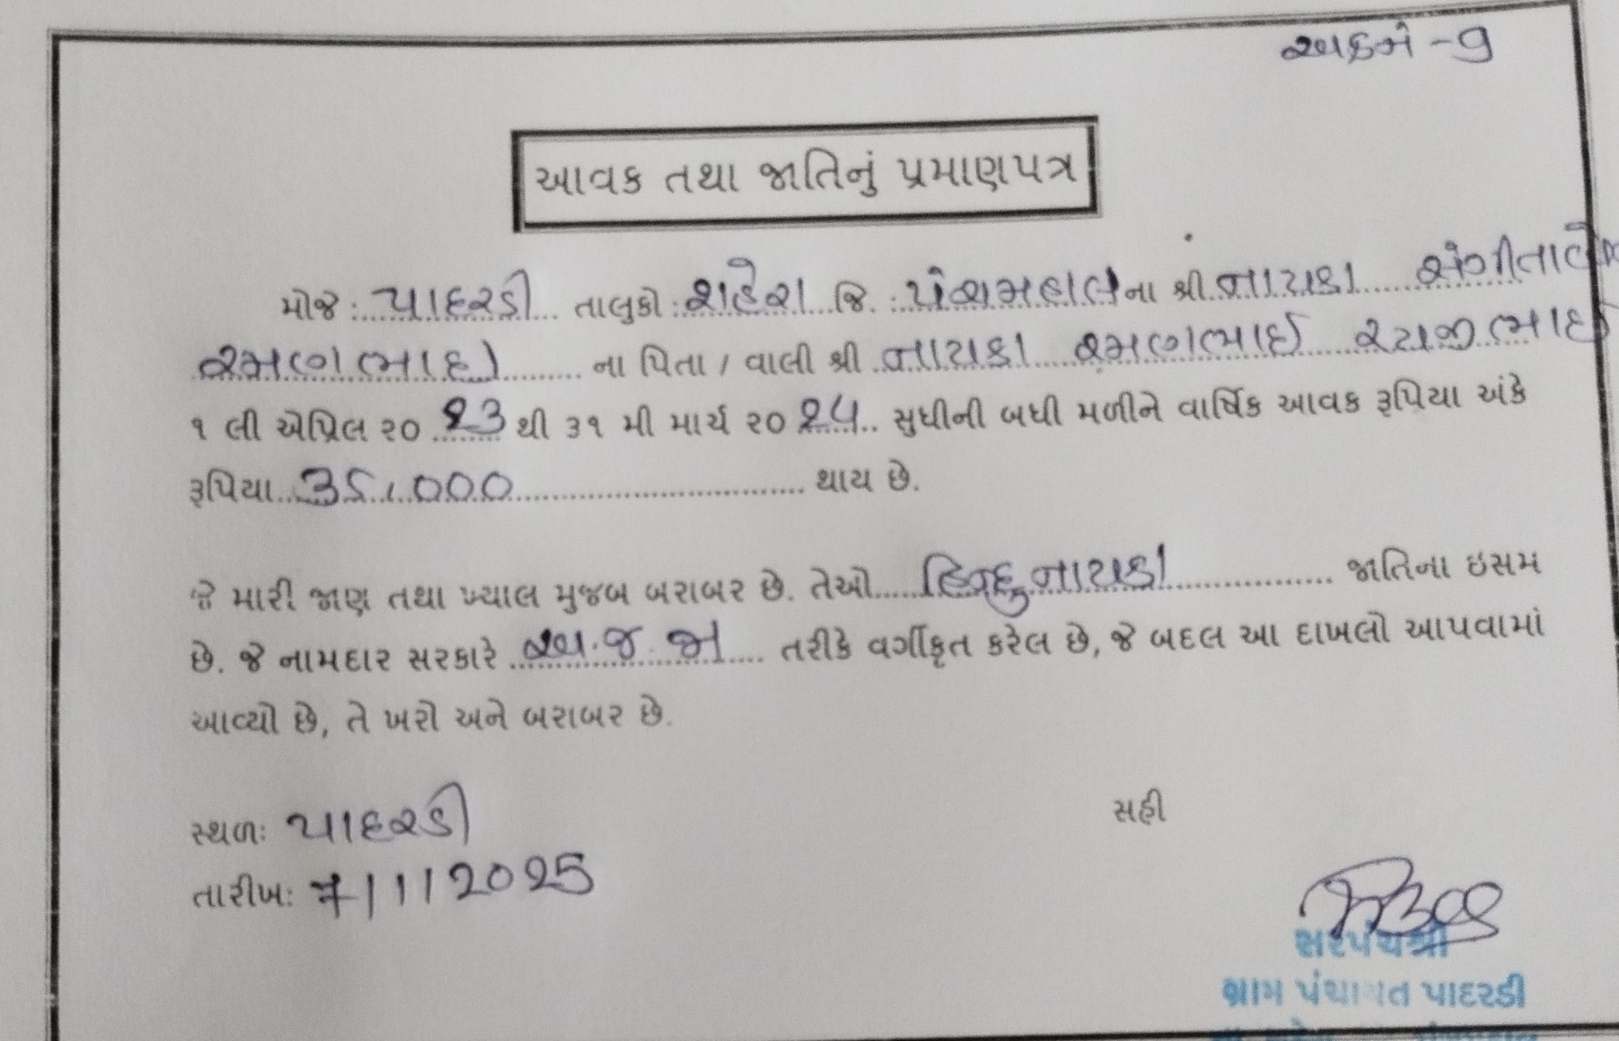 આવક તથા જાતિનું પ્રમાણપત્ર
મોજે : પાદરડી તાલુકો : શહેરા જિ. : પંચમહાલ ના શ્રી નાયકા સંગીતાબેન
રમણભાઈ ના પિતા / વાલી શ્રી નાયકા રમણભાઈ રયજીભાઈ
૧ લી એપ્રિલ ૨૦ ૨૩ થી ૩૧ મી માર્ચ ૨૦ ૨૪ સુધીની બધી મળીને વાર્ષિક આવક રૂપિયા અંકે
રૂપિયા 35,000 થાય છે.
જે મારી જાણ તથા ખ્યાલ મુજબ બરાબર છે. તેઓ હિન્દુ નાયકા જાતિના ઇસમ
છે. જે નામદાર સરકારે અ.જ.જા તરીકે વર્ગીકૃત કરેલ છે, જે બદલ આ દાખલો આપવામાં
આવ્યો છે, તે ખરો અને બરાબર છે.
સ્થળઃ પાદરડી
સહી
તારીખઃ 7/1/2025
સરપંચશ્રી
ગ્રામ પંચાયત પાદરડી